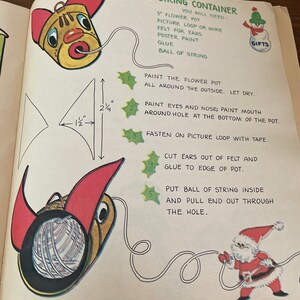 STRING CONTAINER
YOU WILL NEED:
5" FLOWER POT
PICTURE LOOP OR WIRE
FELT FOR EARS
POSTER PAINT
GLUE
BALL OF STRING
GIFTS
1 PAINT THE FLOWER POT
ALL AROUND THE OUTSIDE. LET DRY.
2 PAINT EYES AND NOSE; PAINT MOUTH
AROUND HOLE AT THE BOTTOM OF THE POT.
3 FASTEN ON PICTURE LOOP WITH TAPE.
4 CUT EARS OUT OF FELT AND
GLUE TO EDGE OF POT.
5 PUT BALL OF STRING INSIDE
AND PULL END OUT THROUGH
THE HOLE.
1½"
2¼"